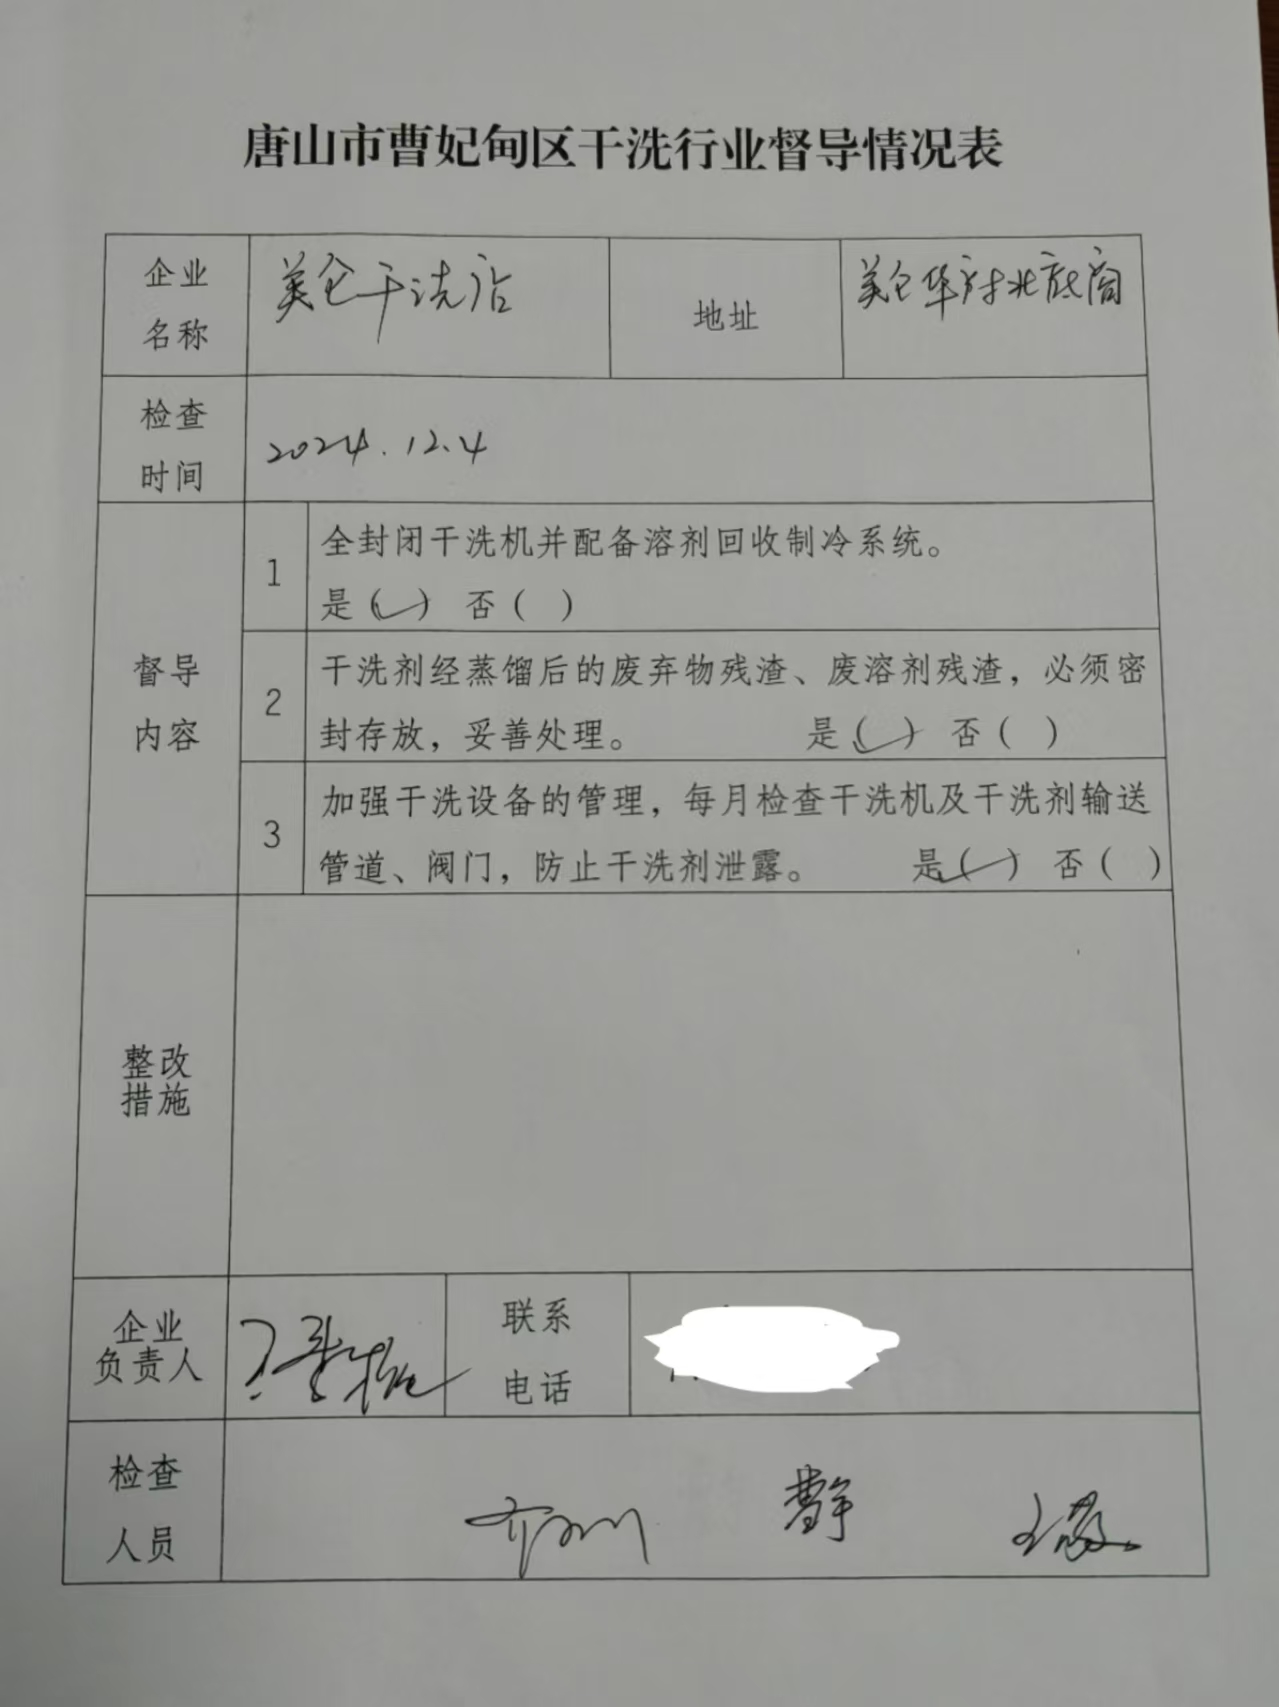 唐山市曹妃甸区干洗行业督导情况表
企业
名称
美仑干洗店
地址
美仑华府北底商
检查
时间
2024.12.4
督导
内容
1
全封闭干洗机并配备溶剂回收制冷系统。
是(✓) 否( )
2
干洗剂经蒸馏后的废弃物残渣、废溶剂残渣，必须密
封存放，妥善处理。 是(✓) 否( )
3
加强干洗设备的管理，每月检查干洗机及干洗剂输送
管道、阀门，防止干洗剂泄露。 是(✓) 否( )
整改
措施
企业
负责人
联系
电话
检查
人员
曹静